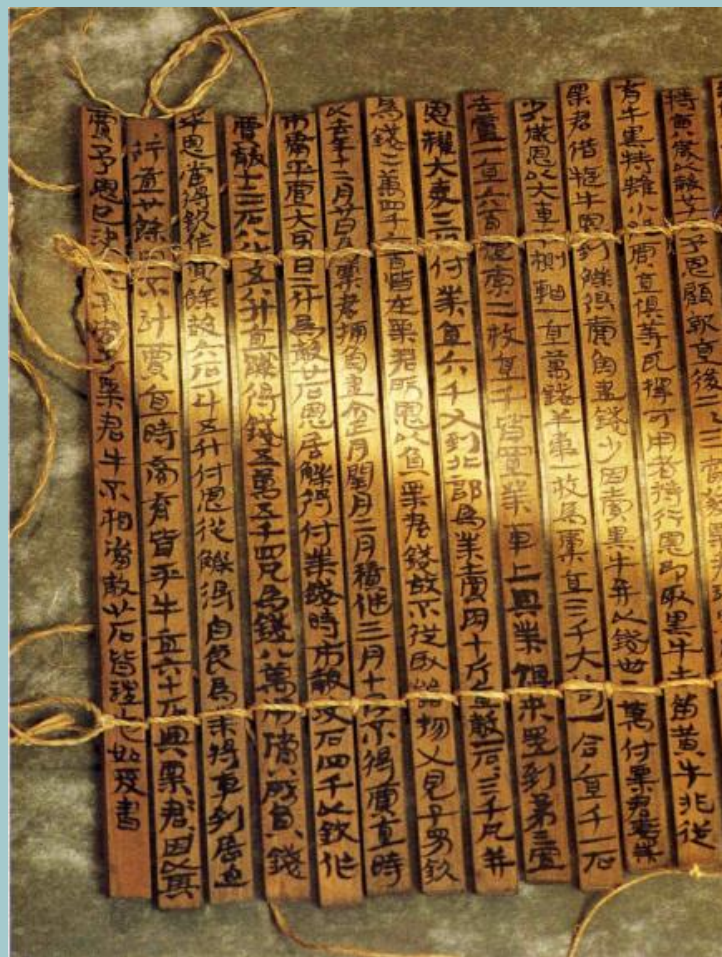 特齒八歲以穀廿七石予恩顧就直後二三日當發粟君
有牛黑特雖小賈直俱等耳擇可用者持行恩即取黑牛去留黃牛非從
粟君借牛恩到觻得賣魚盡錢少因賣黑牛并以錢卅二萬付粟君妻業
少八歲恩以大車半側軸一直萬錢羊韋一枚為橐直三千大笥一合直千一石
去盧一直六百索二枚直千皆置業車上與業俱來還到第三置
恩糴大麥二石付業直六千又到北部為業賣肉十斤直穀一石石三千凡并
為錢二萬四千六百皆在粟君所恩以負粟君錢故不從取器物又恩子男欽
以去年十二月廿日為粟君捕魚盡今正月閏月二月積作三月十日不得賈直時
市庸平賈大男日二斗為穀廿石恩居觻得付業錢時市穀決石四千以欽作
賈穀十三石八斗五升直觻得錢五萬五千四凡為錢八萬用償所負錢
畢恩當得欽作賈餘穀六石一斗五升付恩從觻得自食為業將車到居延
行道廿餘日不計賈直時商育皆平牛直六十石與粟君因以其
賈予恩已決恩不當予粟君牛不相當穀廿石皆證也如爰書